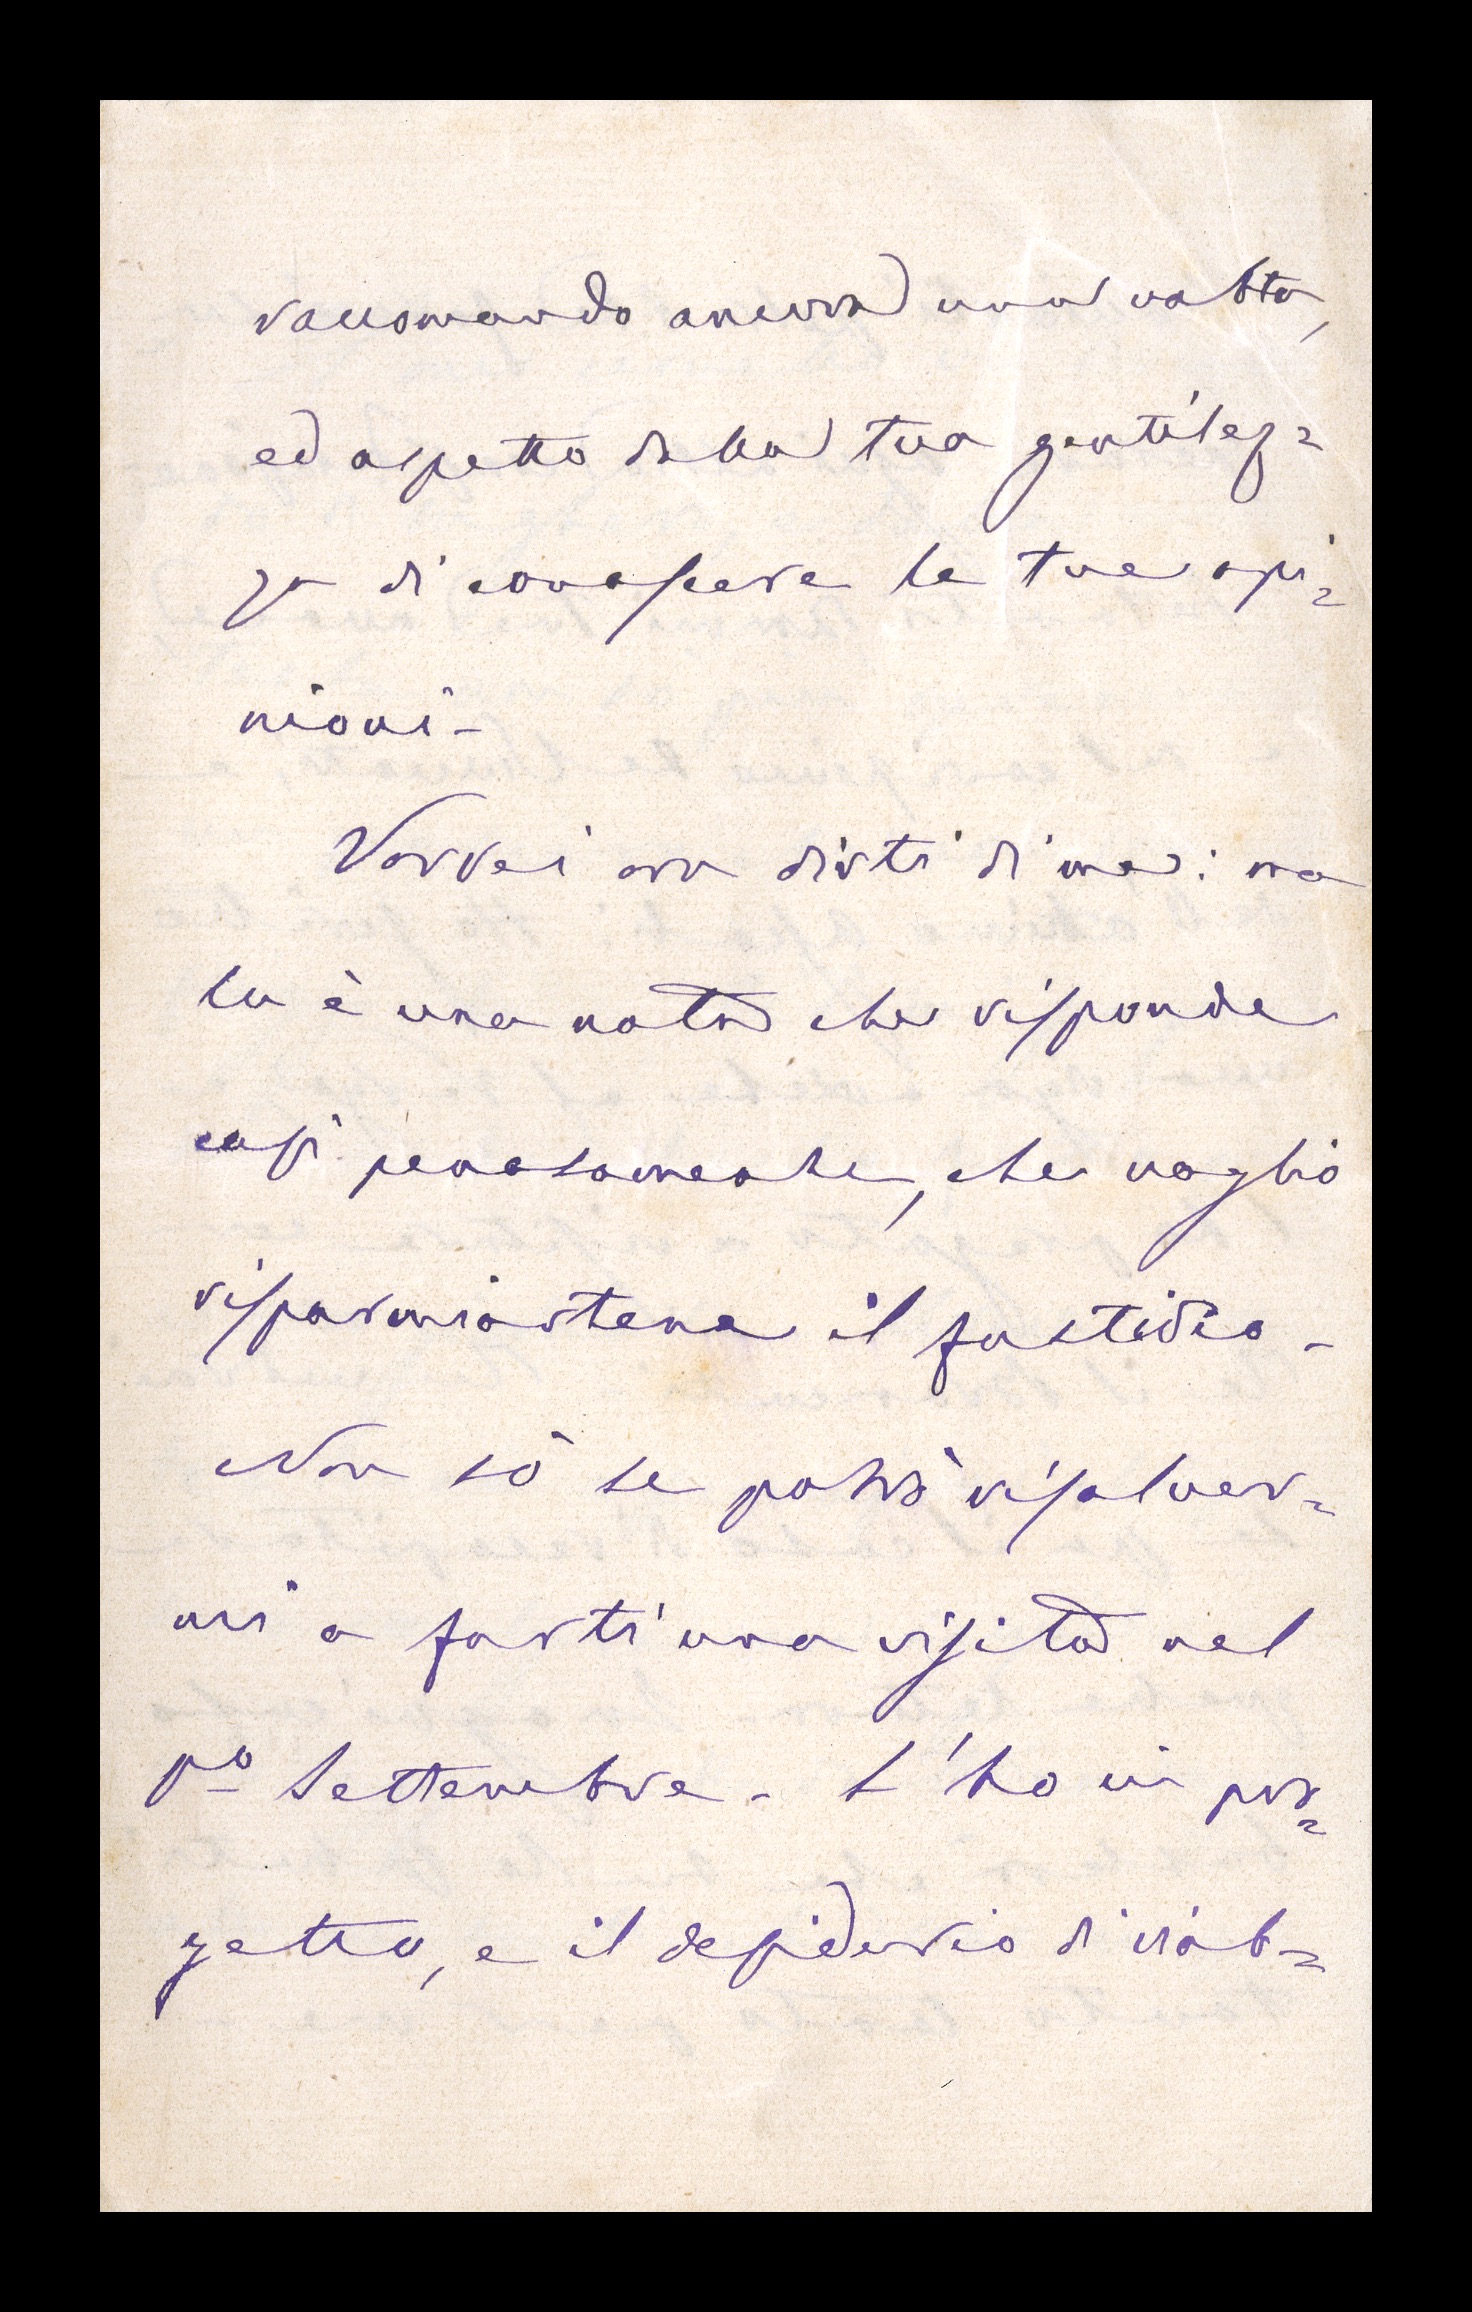 raccomando ancora una volta,
ed aspetto dalla tua gentilez=
za di conoscere le tue opi=
nioni -
Vorrei ora dirti di me: ma
la è una nota che risponde
così penosamente, che voglio
risparmiartene il fastidio -
Non sò se potrò risolver=
mi a farti una visita nel
po Settembre - L'ho in pro=
getto, e il desiderio di riab=